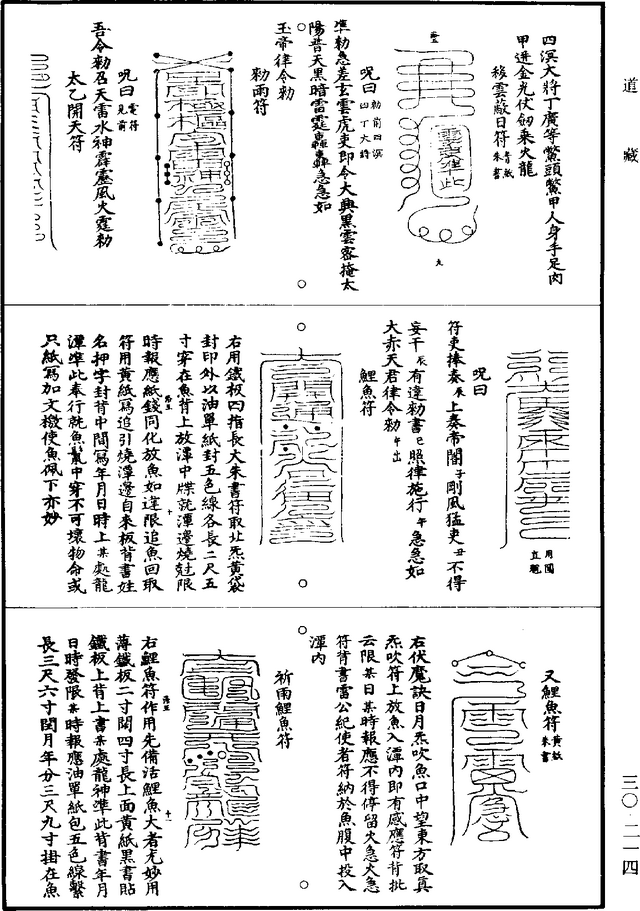 道藏
四溟大將丁廣等鱉頭鱉甲人身手足肉
甲逬金光伏劒乗火龍
移雲蔽日符青紙朱書
呪曰勅前四溟四丁大將
準勅急差玄雲虎吏即令大興黒雲密掩太
陽普天黒暗雷霆轟轟急急如
玉帝律令勅
勅雨符
呪曰電符見前
吾令勅召天雷水神霹靂風火霆勅
太乙開天符
用閧直魁
符吏捧奏辰上奏帝閽子剛風猛吏丑不得
呪曰
妄干辰有違勅書巳照律施行午急急如
大赤天君律令勅午出
鯉魚符
右用鐵板四指長大朱書符取炁黄袋
封印外以油單紙封五色線各長二尺五
寸穿在魚背上放潭中牒就潭邊燒尅限
時報應紙錢同化放魚如違限追魚回取
符用黄紙寫追引燒潭邊自来板背書姓
名押字封背中間寫年月日時上某處龍
潭準此奉行就魚鬣中穿不可壞物命或
只紙寫加文檄使魚佩下亦妙
又鯉魚符黄紙朱書
右伏魔訣日月炁吹魚口中望東方取真
炁吹符上放魚入潭内即有感應符背批
云限某日某時報應不得停留火急火急
符背書雷公紀使者符納於魚腹中投入
潭内
祈雨鯉魚符
右鯉魚符作用先備活鯉魚大者尤妙用
薄鐵板二寸闊四寸長上面黄紙黒書貼
鐵板上背上書某處龍神準此背書年月
日時發限某時報應油單紙包五色線繫
長三尺六寸閏月年分三尺九寸掛在魚
三〇·二一四